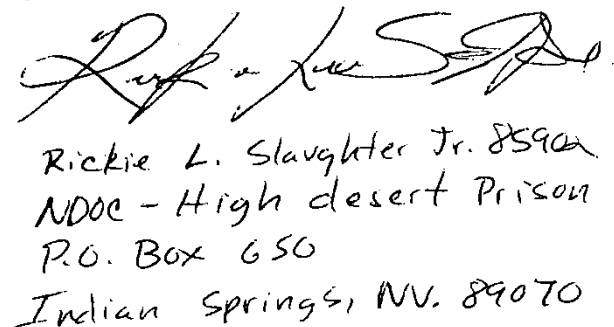 Rickie L. Slaughter Jr. 85902
NDOC - High desert Prison
P.O. Box 650
Indian Springs, NV. 89070